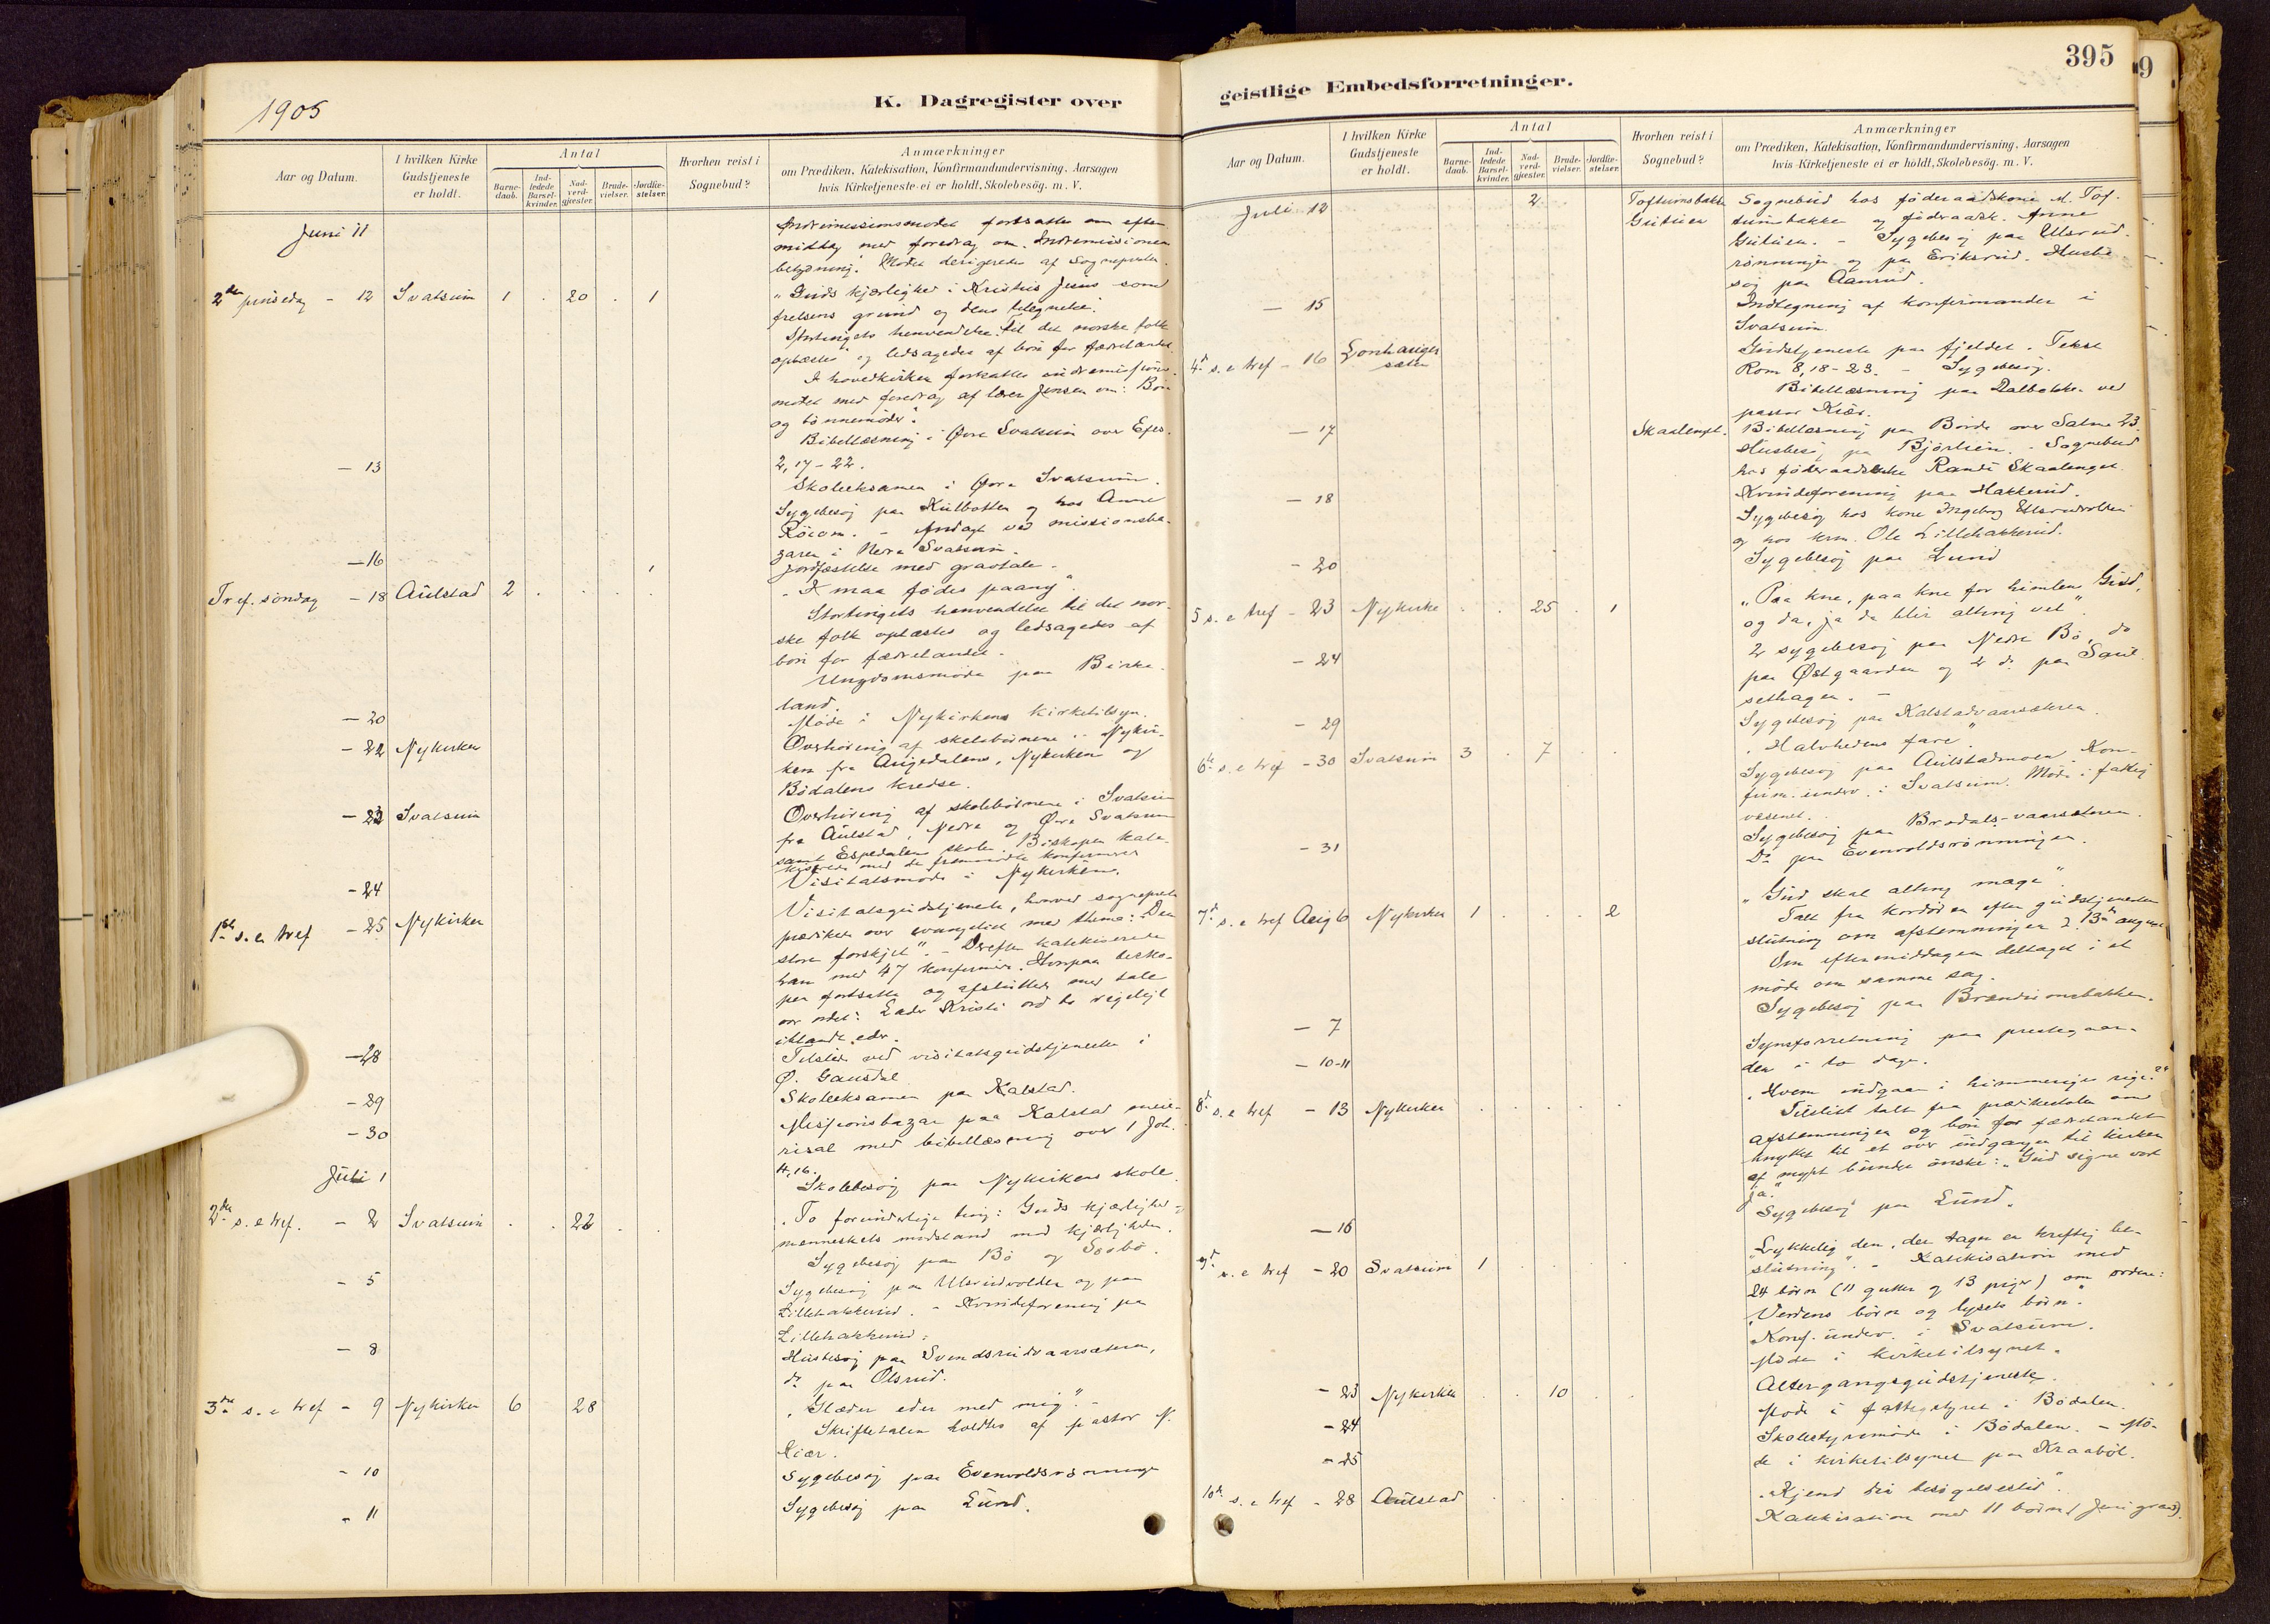 1905
K. Dagregister over
Aar og Datum.
I hvilken Kirke Gudstjeneste er holdt.
Antal
Barnedaab.
Indledede Barselkvinder.
Nadverdgjæster.
Brudevielser.
Jordfæstelser.
Hvorhen reist i Sognebud?
Anmærkninger
om Prædiken, Katekisation, Konfirmandundervisning, Aarsagen
hvis Kirketjeneste ei er holdt, Skolebesög. m. V.
Juni 11
Indremissionsmødet fortsattes om efter
middag med foredrag om Indremissionens
betydning. Mødet derigeredes af Sognepresten.
2den pinsedag - 12 Svatsum 1 . 20 . 1
"Guds kjærlighed i Kristus Jesus som
frelsens grund og dens tilegnelse".
Stortingets henvendelse til det norske folk
oplæstes og ledsagedes af bøn for fædrelandet.
I hovedkirken fortsattes indremissions-
mødet med foredrag af lærer Jensen om: Bøn
og bönnemöder".
- 13
Bibellæsning i Øvre Svatsum over Efes.
2, 17-22.
Skoleeksamen i Øvre Svatsum.
Sygebesøg paa Kulbotten og hos Anne
- Andagt ved missionsba-
zaren i Nedre Svatsum.
- 16
1
Jordfæstelse med gravtale.
Tref. søndag - 18 Aulstad 2
"I maa fødes paany".
Stortingets henvendelse til det nor-
ske folk oplæstes og ledsagedes af
bön for fædrelandet.
Ungdomsmøde paa Birke-
land.
- 20
Møde i Nykirkens kirketilsyn.
- 22 Nykirken
Overhøring af skolebørnene i Nykir-
ken fra Augedalens, Nykirken og
Bödalens kredse.
- 23 Svatsum
Overhøring af skolebörnene i Svatsum
fra Aulstad, Nedre og Øvre Svatsum
samt Espedalen skole. Biskopen kate-
kiserede med de fremmødte konfirmerede
- 24
Visitatsmøde i Nykirken.
1ste s. e. tref - 25 Nykirken
Visitatsgudstjeneste, hvorved sognepresten
prædikede over evangeliet med thema: "Den
store forskjel". - Derefter katekiserede
han med 47 konfirmerede. Hvorpaa bisko-
pen fortsatte og afsluttede med tale
over ordet: Lader Kristi ord bo rigeligt
iblandt eder.
- 28
Tilstede ved visitatsgudstjenesten i
Ø. Gausdal
- 29
Skoleeksamen paa Kalstad.
- 30
Missionsbazar paa Kalstad meie-
risal med bibellæsning over 1 Joh.
4, 16.
Juli 1
Skolebesøg paa Nykirkens skole.
2den s. e. tref. - 2 Svatsum . . 22
"To forunderlige ting: Guds kjærlighed og
menneskets modstand mod kjærligheden.
Sygebesøg paa Bö og Sörbö.
- 5
Sygebesøg paa Ulsrudvolden og paa
Lillehakkerud. - Kvindeforening paa
Lillehakkerud.
- 8
Husbesøg paa Svendsrudvaarsæteren,
do paa Olsrud.
3die s. e. tref - 9 Nykirken 6 28
"Glæder eder med mig".
Skriftetalen holdtes af pastor N.
Kiær.
- 10
Sygebesøg paa Evenvoldsrønningen
- 11
Sygebesøg paa Lund.
geistlige Embedsforretninger.
395
9
Aar og Datum.
I hvilken Kirke Gudstjeneste er holdt.
Antal
Barnedaab.
Indledede Barselkvinder.
Nadverdgjæster.
Brudevielser.
Jordfæstelser.
Hvorhen reist i Sognebud?
Anmærkninger
om Prædiken, Katekisation, Konfirmandundervisning, Aarsagen
hvis Kirketjeneste ei er holdt, Skolebesög. m. V.
Juli 12 2 Toftumsbakke
Gutuen
Sognebud hos föderaadskone M. Tof-
tumsbakke og föderaadsk. Anne
Gutuen. - Sygebesøg paa Ulsrud-
rønningen og paa Eriksrud. Husbe-
søg paa Aanrud.
- 15
Indtegning af konfirmander i
Svatsum.
4de s. e. tref - 16
sæter
Gudstjeneste paa fjeldet. Tekst
Rom 8, 18-23. - Sygebesøg.
Bibellæsning paa Dalbakken ved
pastor Kiær.
- 17 Skaalenget.
Bibellæsning paa over Salme 23.
Husbesøg paa Bjørlien. Sognebud
hos føderaadsenke Randi Skaalenget.
- 18
Kvindeforening paa Hakkerud.
Sygebesøg hos kone Ingeborg
og hos krm. Ole Lillehakkerud.
- 20
Sygebesøg paa Lund
5 s. e. tref - 23 Nykirke . . 25 . 1
"Paa kne, paa kne for himlens Gud,
og da, ja da blir alting vel"
- 24
2 sygebesøg paa Nedre Bö, do
paa Østgaarden og 2 do paa
sethagen. -
- 29
Sygebesøg paa Kalstadvaarsæteren.
6te s. e. tref - 30 Svatsum 3 . 7
"Halvhedens fare".
Sygebesøg paa Aulstadmoen. Kon-
firm. underv. i Svatsum. Møde i fattig
væsenet.
- 31
Sygebesøg paa Brodals-vaarsæteren.
Do paa Evenvoldsrønningen.
7de s. e. tref Aug 6 Nykirken 1 . . . 2
"Gud skal alting mage".
Talt fra kordören efter gudstjenesten
slutning om afstemningen d. 13de august
Om eftermiddagen deltaget i et
møde om samme sag.
- 7
Sygebesøg paa Brændumsbakken.
- 10-11
Synsforretning paa prestegaar-
den i to dage.
8de s. e. tref - 13 Nykirken
"Hvem indgaar i himmeriges rige?"
Tilslut talt fra prækestolen om
afstemningen og bøn for fædrelandet
knyttet til et over indgangen til kirken
af mygt bundne ønske: "Gud signe vort
ja."
- 16
Sygebesøg paa Lund.
9de s. e. tref - 20 Svatsum 1
"Lykkelig den, der tager en kraftig be-
slutning". - Katekisation med
24 børn (11 gutter og 13 piger) om ordene:
"Verdens börn og lysets börn".
Konf. underv. i Svatsum.
Møde i kirketilsynet.
- 23 Nykirken . . 10
Altergangsgudstjeneste.
- 24
Møde i fattigstyret i Bödalen.
- 25
Skolestyremøde i Bödalen. - Mö-
de i kirketilsynet paa Kraaböl.
10de s. e. tref - 28 Aulstad
"Kjend din besøgelsestid".
Katekisation med 11 börn